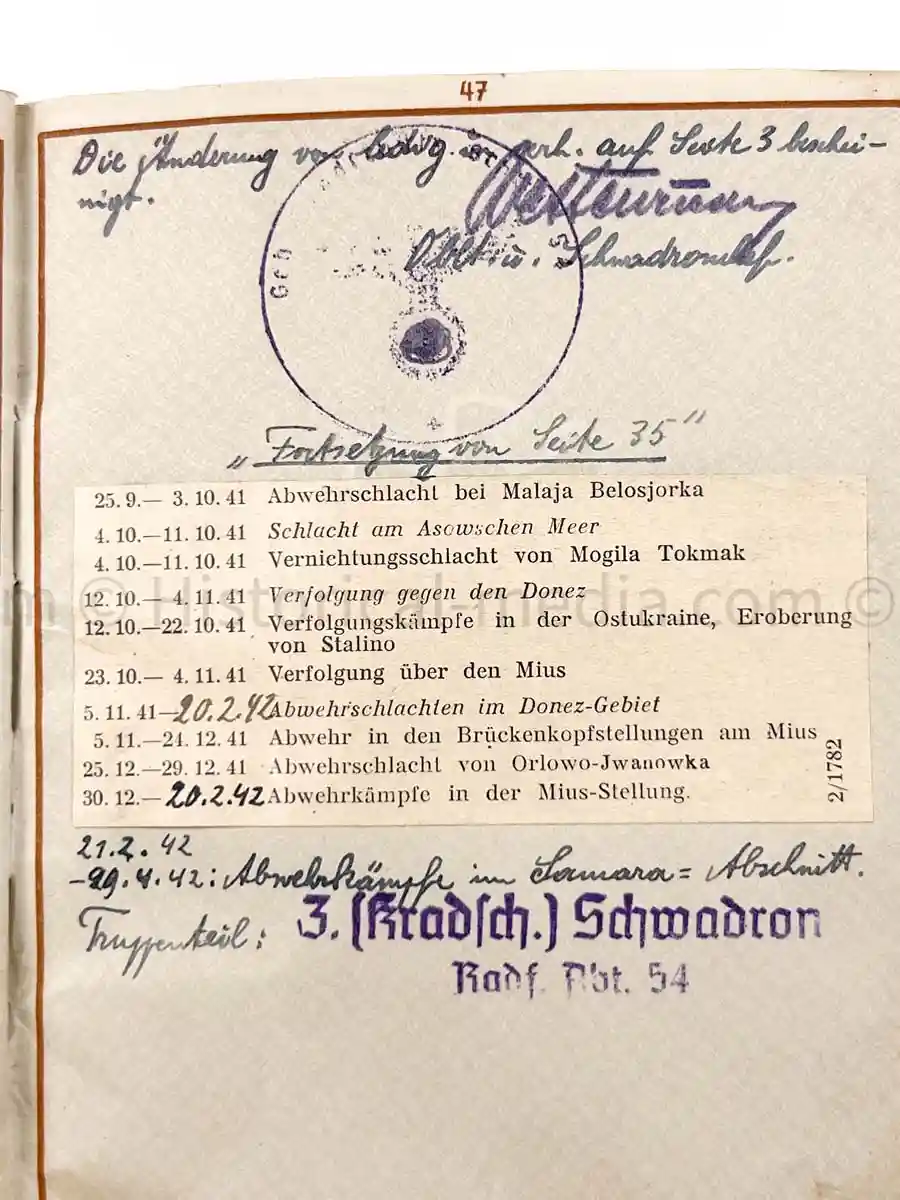 47
Die Änderung von ledig in verh. auf Seite 3 beschei-
nigt.
Oblt. u. Schwadronchef.
Geb
"Fortsetzung von Seite 35"
25. 9.— 3. 10. 41 Abwehrschlacht bei Malaja Belosjorka
4. 10.—11. 10. 41 Schlacht am Asowschen Meer
4. 10.—11. 10. 41 Vernichtungsschlacht von Mogila Tokmak
12. 10.— 4. 11. 41 Verfolgung gegen den Donez
12. 10.—22. 10. 41 Verfolgungskämpfe in der Ostukraine, Eroberung
von Stalino
23. 10.— 4. 11. 41 Verfolgung über den Mius
5. 11. 41—20.2.42 Abwehrschlachten im Donez-Gebiet
5. 11.—24. 12. 41 Abwehr in den Brückenkopfstellungen am Mius
25. 12.—29. 12. 41 Abwehrschlacht von Orlowo-Jwanowka
30. 12.—20.2.42 Abwehrkämpfe in der Mius-Stellung.
2/1782
21.2.42
-29.4.42: Abwehrkämpfe im Samara= Abschnitt.
Truppenteil: 3. (Kradsch.) Schwadron
Radf. Abt. 54
© Historical-media.com ©